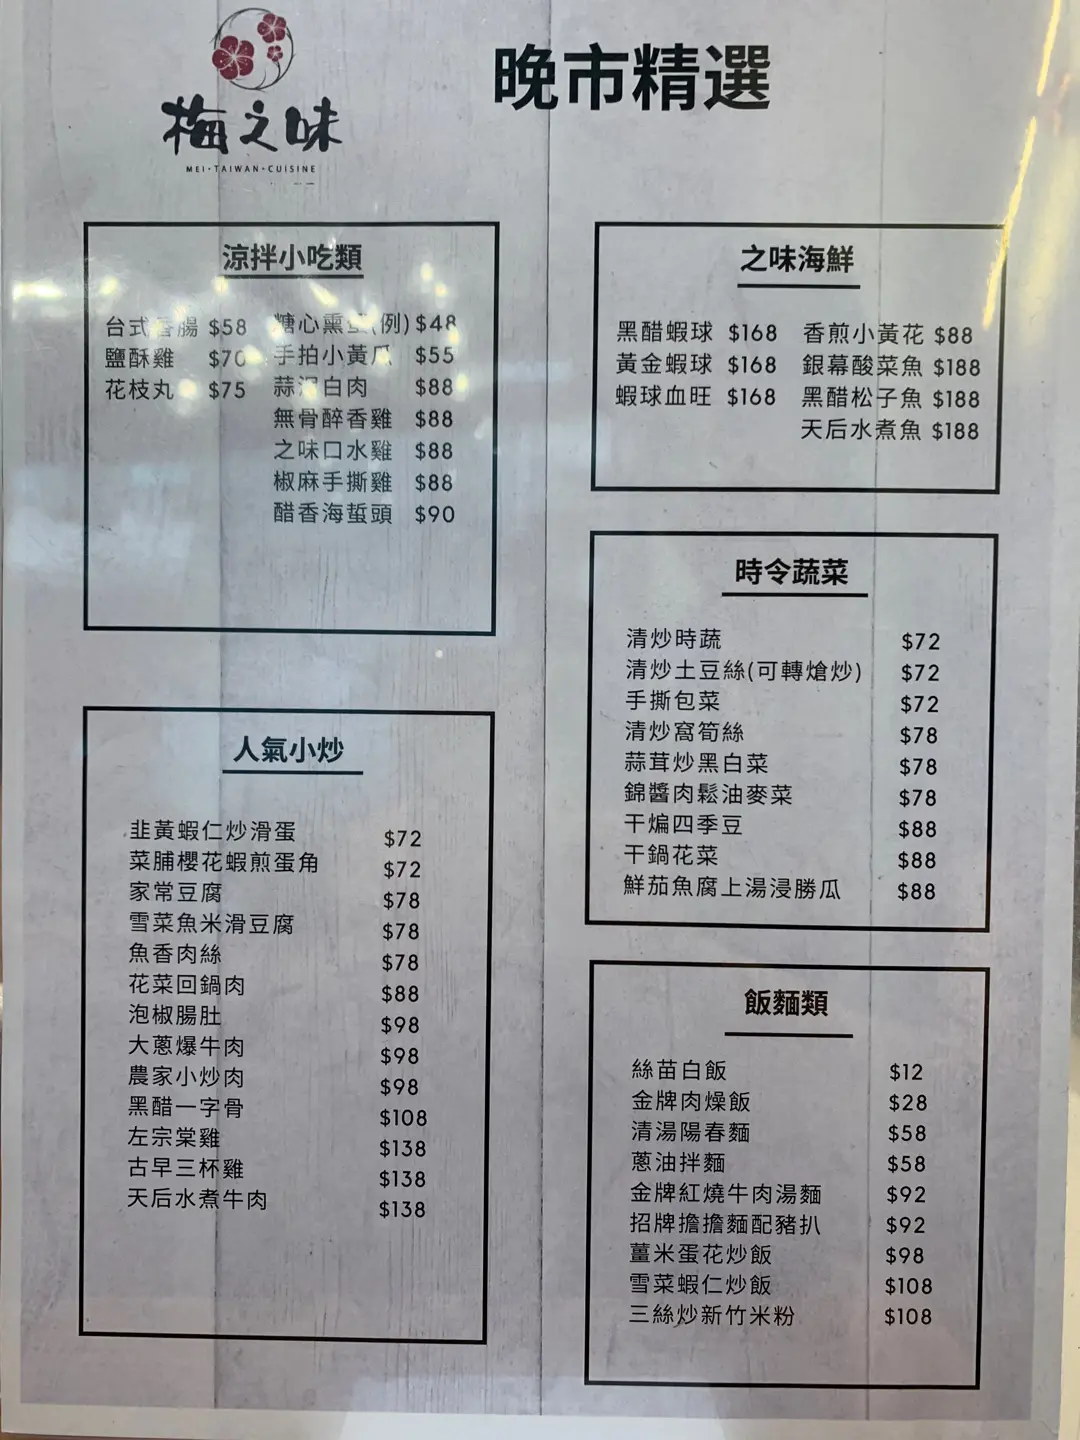 梅之味
MEI·TAIWAN·CUISINE
晚市精選
涼拌小吃類
台式香腸 $58
鹽酥雞 $70
花枝丸 $75
糖心熏蛋(例) $48
手拍小黃瓜 $55
蒜泥白肉 $88
無骨醉香雞 $88
之味口水雞 $88
椒麻手撕雞 $88
醋香海蜇頭 $90
人氣小炒
韭黃蝦仁炒滑蛋 $72
菜脯櫻花蝦煎蛋角 $72
家常豆腐 $78
雪菜魚米滑豆腐 $78
魚香肉絲 $78
花菜回鍋肉 $88
泡椒腸肚 $98
大蔥爆牛肉 $98
農家小炒肉 $98
黑醋一字骨 $108
左宗棠雞 $138
古早三杯雞 $138
天后水煮牛肉 $138
之味海鮮
黑醋蝦球 $168
黃金蝦球 $168
蝦球血旺 $168
香煎小黃花 $88
銀幕酸菜魚 $188
黑醋松子魚 $188
天后水煮魚 $188
時令蔬菜
清炒時蔬 $72
清炒土豆絲(可轉熗炒) $72
手撕包菜 $72
清炒窩筍絲 $78
蒜茸炒黑白菜 $78
錦醬肉鬆油麥菜 $78
干煸四季豆 $88
干鍋花菜 $88
鮮茄魚腐上湯浸勝瓜 $88
飯麵類
絲苗白飯 $12
金牌肉燥飯 $28
清湯陽春麵 $58
蔥油拌麵 $58
金牌紅燒牛肉湯麵 $92
招牌擔擔麵配豬扒 $92
薑米蛋花炒飯 $98
雪菜蝦仁炒飯 $108
三絲炒新竹米粉 $108